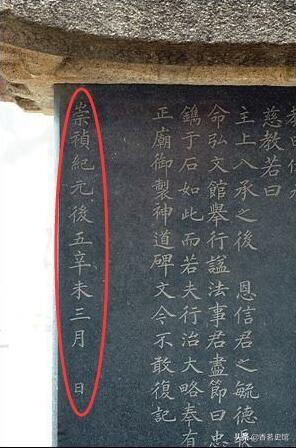 慈教若曰
主上入承之後　恩信君之毓德
命弘文館舉行謚法事君盡節曰忠
鐫于石如此而若夫行治大略奉有
正廟御製神道碑文今不敢復記
崇禎紀元後五辛未三月　日
头条@香茗史馆